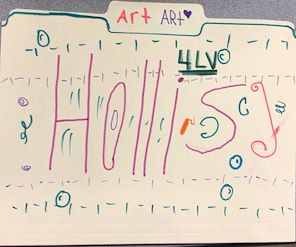 Art ART
4LV
Hollis J